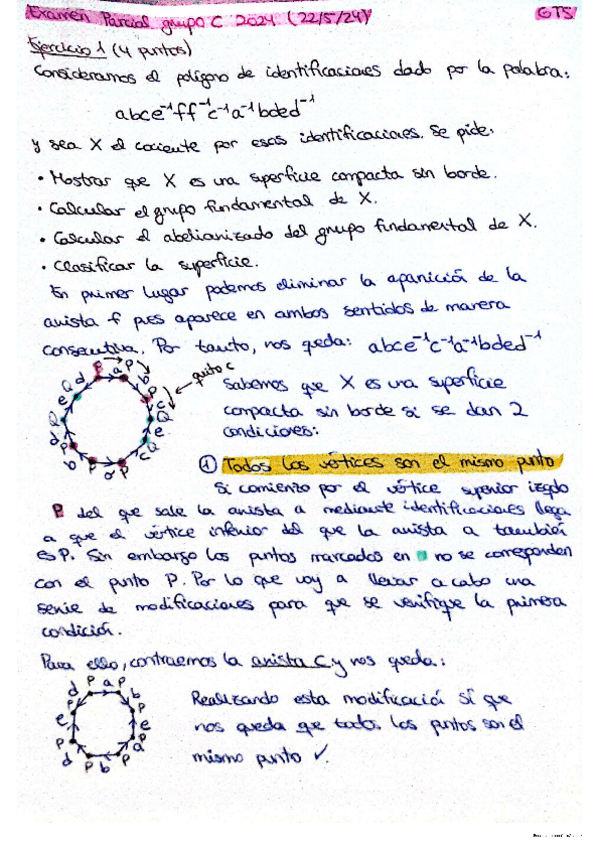 Examen Parcial grupo C 2024 (22/5/24) GTS
Ejercicio 1 (4 puntos)
Consideramos el polígono de identificaciones dado por la palabra:
abce⁻¹ff⁻¹c⁻¹a⁻¹bded⁻¹
y sea X el cociente por esas identificaciones. Se pide:
• Mostrar que X es una superficie compacta sin borde.
• Calcular el grupo fundamental de X.
• Calcular el abelianizado del grupo fundamental de X.
• Clasificar la superficie.
En primer lugar podemos eliminar la aparición de la
arista f pues aparece en ambos sentidos de manera
consecutiva. Por tanto, nos queda: abce⁻¹c⁻¹a⁻¹bded⁻¹
P a P b P c Q e Q c P a P b P d Q e Q d
quito c
Sabemos que X es una superficie
compacta sin borde si se dan 2
condiciones:
① Todos los vértices son el mismo punto
Si comienzo por el vértice superior izqdo
P del que sale la arista a mediante identificaciones llega
a que el vértice inferior del que la arista a también
es P. Sin embargo los puntos marcados en no se corresponden
con el punto P. Por lo que voy a llevar a cabo una
serie de modificaciones para que se verifique la primera
condición.
Para ello, contraemos la arista C y nos queda:
P a P b P e P a P b P d P e P d
Realizando esta modificación sí que
nos queda que todos los puntos son el
mismo punto ✓.